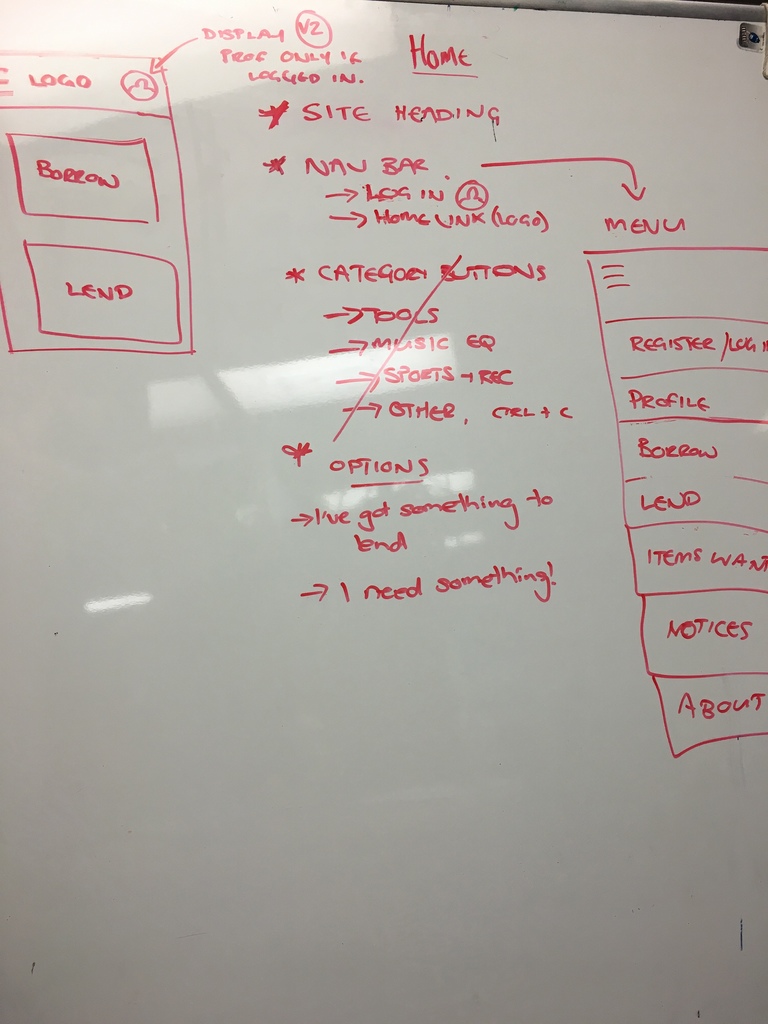 DISPLAY V2
PROF ONLY IF
LOGGED IN.
LOGO
BORROW
LEND
Home
* SITE HEADING
* NAV BAR.
→ LOG IN
→ Home LINK (LOGO)
* CATEGORY BUTTONS
→ TOOLS
→ MUSIC EQ
→ SPORTS + REC
→ OTHER, CTRL + C
* OPTIONS
→ I've got something to
lend
→ I need something!
MENU
REGISTER/LOG I
PROFILE
BORROW
LEND
ITEMS WANT
NOTICES
ABOUT